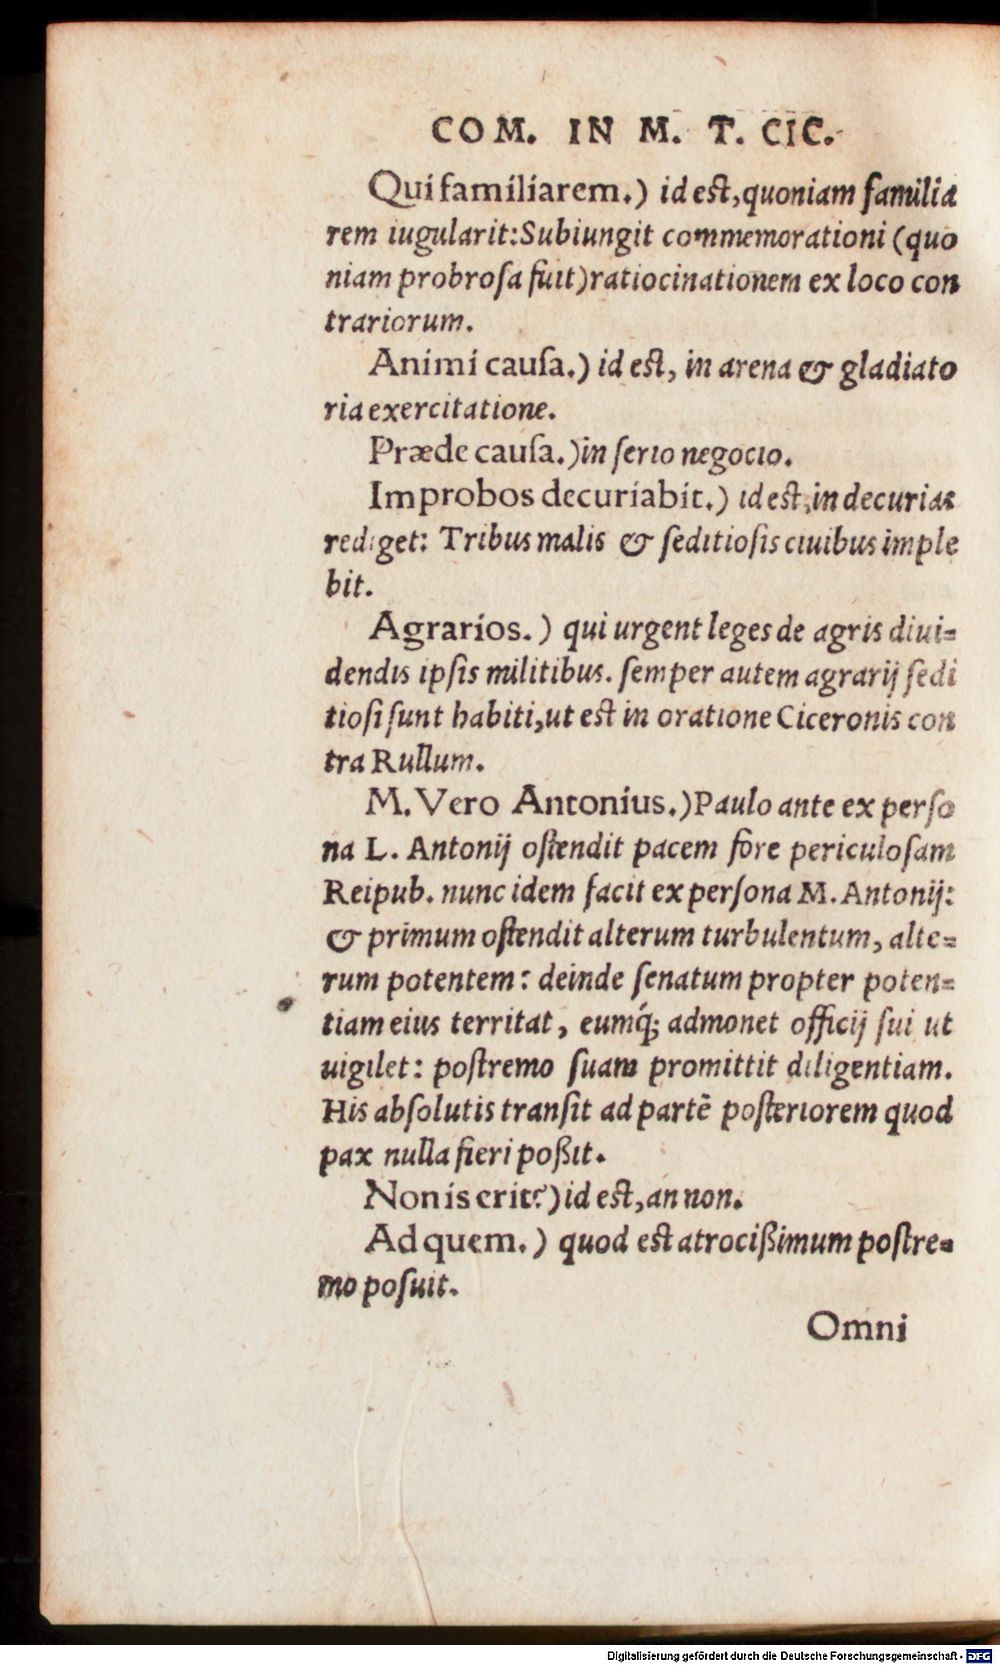 COM. IN M. T. CIC.
Qui familiarem.) id eſt, quoniam familia
rem iugularit: Subiungit commemorationi (quo
niam probroſa fuit) ratiocinationem ex loco con
trariorum.
Animi cauſa.) id eſt, in arena & gladiato
ria exercitatione.
Prædę cauſa.) in ſerio negocio.
Improbos decuriabit.) id eſt, in decurias
rediget: Tribus malis & ſeditioſis ciuibus imple
bit.
Agrarios.) qui urgent leges de agris diui=
dendis ipſis militibus. ſemper autem agrarij ſedi
tioſi ſunt habiti, ut eſt in oratione Ciceronis con
tra Rullum.
M. Vero Antonius.) Paulo ante ex perſo
na L. Antonij oſtendit pacem fore periculoſam
Reipub. nunc idem facit ex perſona M. Antonij:
& primum oſtendit alterum turbulentum, alte=
rum potentem: deinde ſenatum propter poten=
tiam eius territat, eumq́; admonet officij ſui ut
uigilet: poſtremo ſuam promittit diligentiam.
His abſolutis tranſit ad partē poſteriorem quod
pax nulla fieri poßit.
Non is erit?) id eſt, an non.
Ad quem.) quod eſt atrocißimum poſtre=
mo poſuit.
Omni
Digitalisierung gefördert durch die Deutsche Forschungsgemeinschaft - DFG